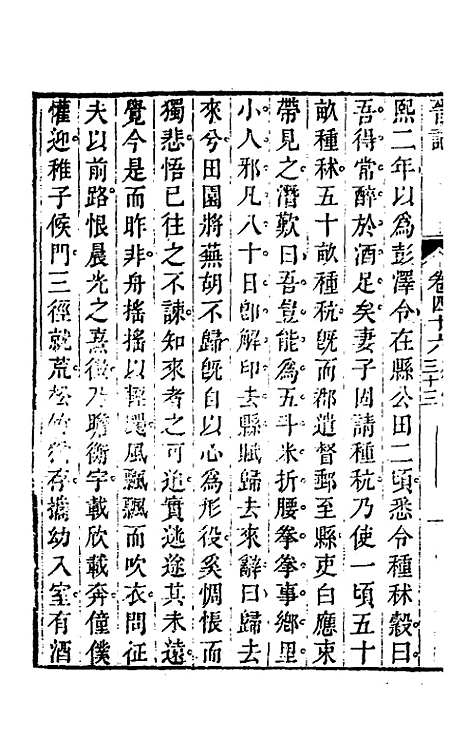 晉記 卷四十六 三十三
熙二年以爲彭澤令在縣公田二頃悉令種秫穀曰
吾得常醉於酒足矣妻子固請種秔乃使一頃五十
畝種秫五十畝種秔旣而郡遣督郵至縣吏白應束
帶見之潛歎曰吾豈能爲五斗米折腰拳拳事鄉里
小人邪凡八十日卽解印去縣賦歸去來辭曰歸去
來兮田園將蕪胡不歸旣自以心爲形役奚惆悵而
獨悲悟已往之不諫知來者之可追實迷途其未遠
覺今是而昨非舟搖搖以輕颺風飄飄而吹衣問征
夫以前路恨晨光之熹微乃瞻衡宇載欣載奔僮僕
懽迎稚子候門三徑就荒松竹猶存攜幼入室有酒